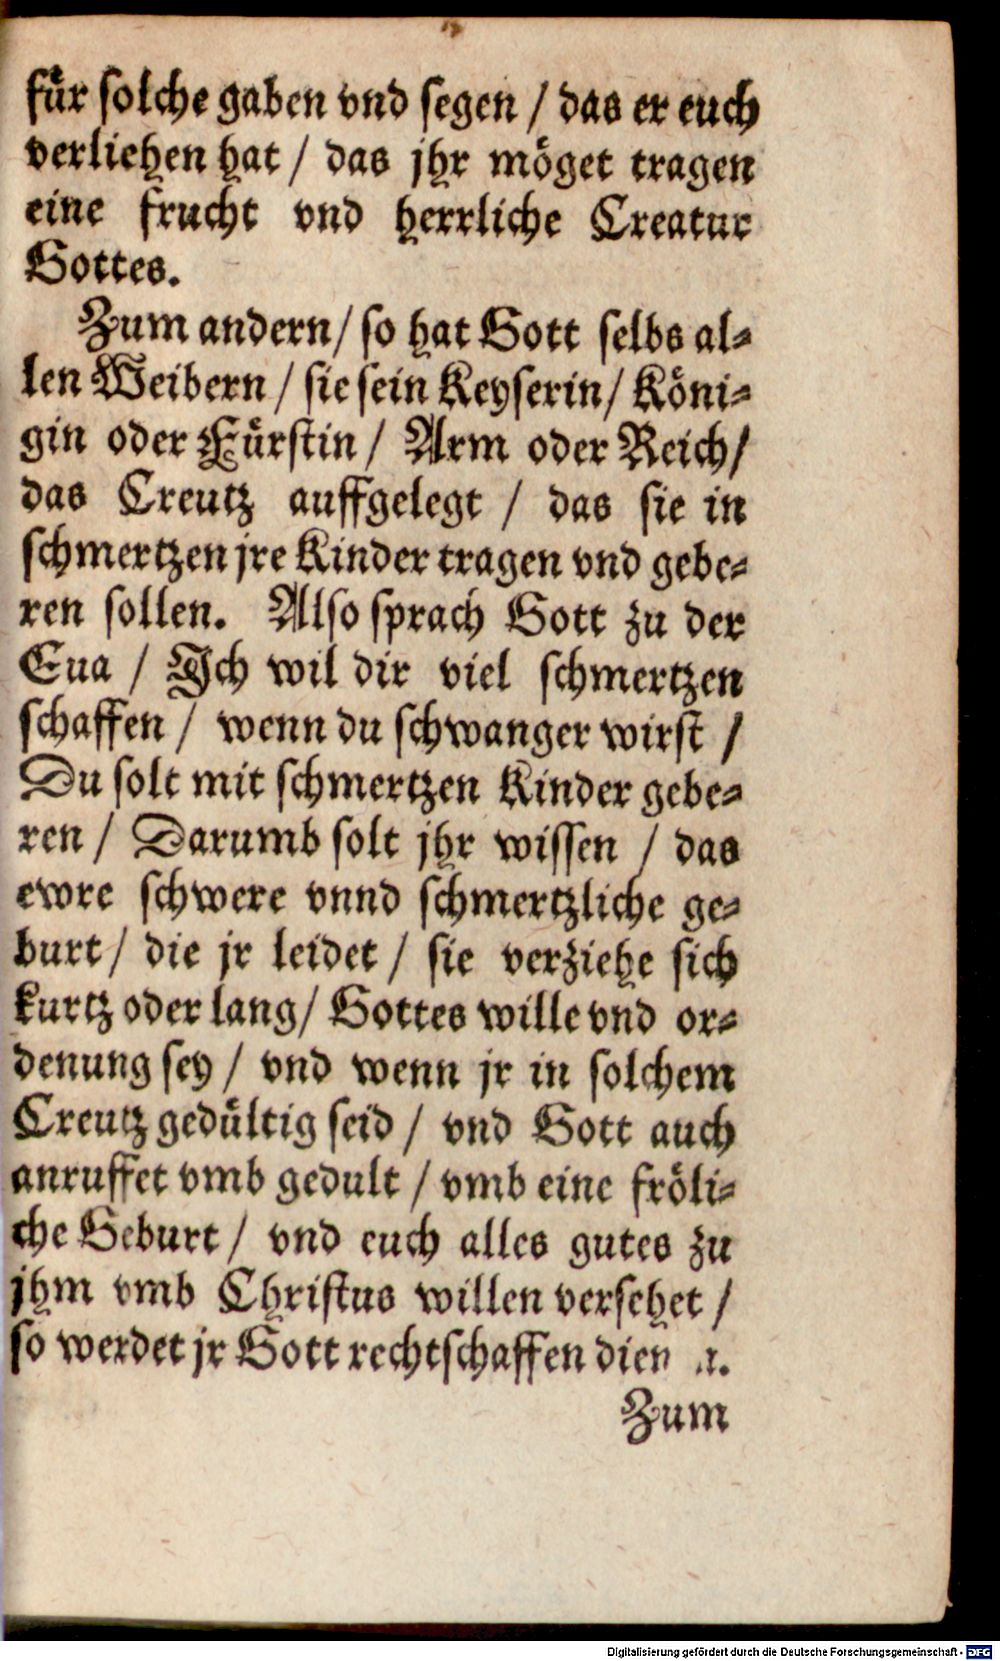 für solche gaben vnd segen / das er euch
verliehen hat / das jhr möget tragen
eine frucht vnd herrliche Creatur
Gottes.
Zum andern / so hat Gott selbs al-
len Weibern / sie sein Keyserin / Köni-
gin oder Fürstin / Arm oder Reich /
das Creutz auffgelegt / das sie in
schmertzen jre Kinder tragen vnd gebe-
ren sollen. Also sprach Gott zu der
Eua / Ich wil dir viel schmertzen
schaffen / wenn du schwanger wirst /
Du solt mit schmertzen Kinder gebe-
ren / Darumb solt jhr wissen / das
ewre schwere vnnd schmertzliche ge-
burt / die jr leidet / sie verziehe sich
kurtz oder lang / Gottes wille vnd or-
denung sey / vnd wenn jr in solchem
Creutz gedültig seid / vnd Gott auch
anruffet vmb gedult / vmb eine fröli-
che Geburt / vnd euch alles gutes zu
jhm vmb Christus willen versehet /
so werdet jr Gott rechtschaffen
Zum
Digitalisierung gefördert durch die Deutsche Forschungsgemeinschaft - DFG